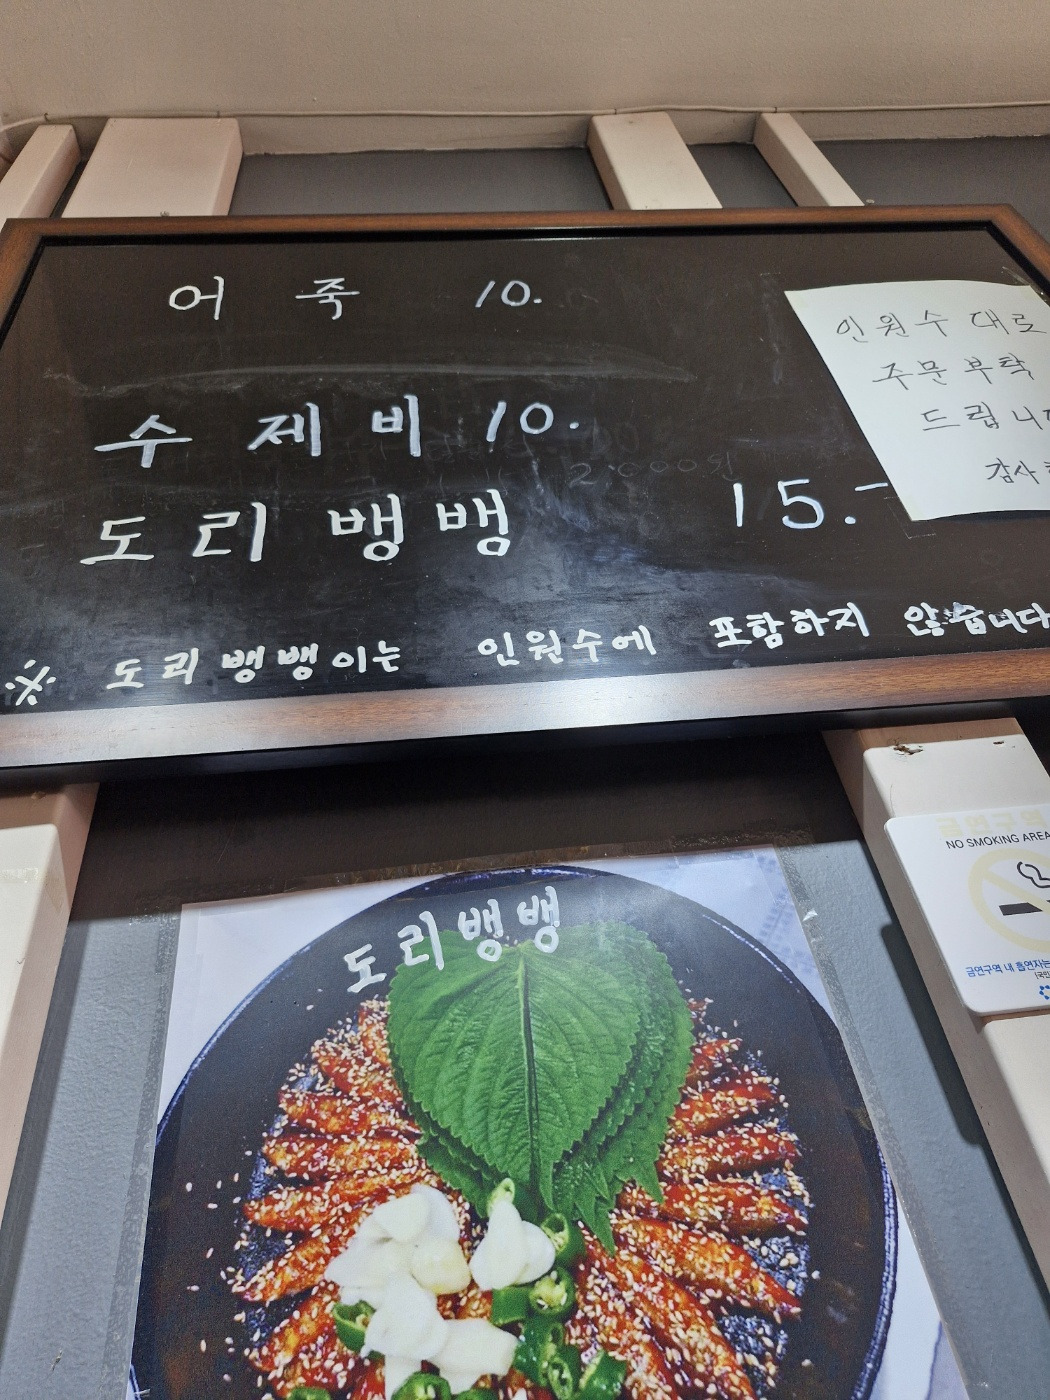 어죽 10.
수제비 10.
도리뱅뱅 15.-
※ 도리뱅뱅이는 인원수에 포함하지 않습니다
인원수 대로
주문 부탁
드립니다
감사
도리뱅뱅
금연구역
NO SMOKING AREA
금연구역 내 흡연자는